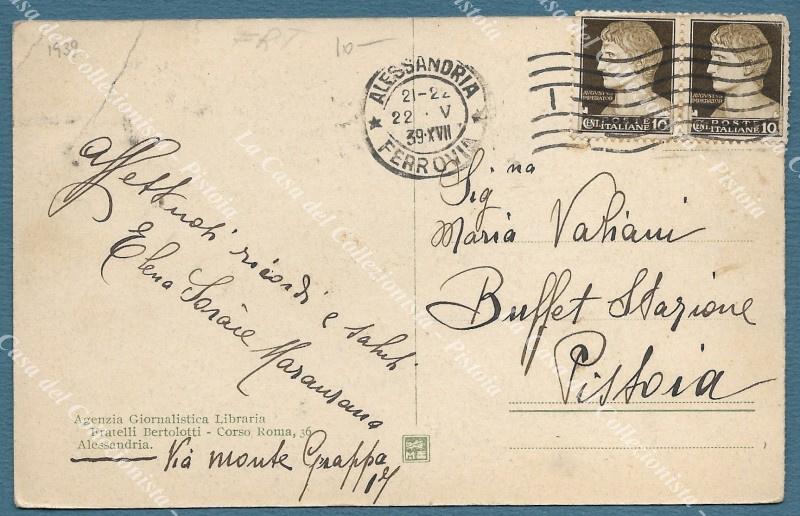 1939
FRT
10-
ALESSANDRIA
21-22
22 · V
39·XVII
FERROVIA
AUGUSTUS
IMPERATOR
POSTE
CENT. ITALIANE 10
AUGUSTUS
IMPERATOR
POSTE
CENT. ITALIANE 10
Affettuosi ricordi e saluti
Elena Maranzano
Signa
Maria Valiani
Buffet Stazione
Pistoia
Agenzia Giornalistica Libraria
Fratelli Bertolotti - Corso Roma, 36
Alessandria.
Via Monte Grappa
La Casa del Collezionista - Pistoia